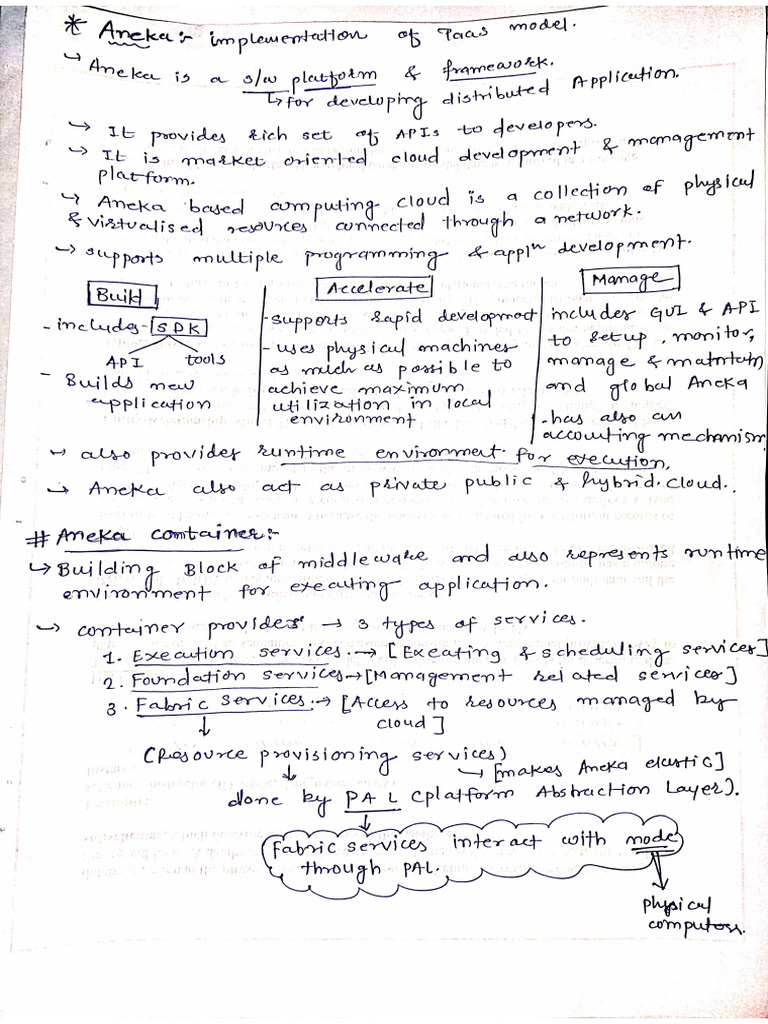 * Aneka:- implementation of Paas model.
↳ Aneka is a s/w platform & framework.
↳ for developing distributed Application.
↳ It provides rich set of APIs to developers.
↳ It is market oriented cloud development & management
platform.
↳ Aneka based computing cloud is a collection of physical
& virtualised resources connected through a network.
↳ supports multiple programming & appln development.
Build
- includes - SDK
API tools
- Builds new
application
Accelerate
- supports rapid development
- uses physical machines
as much as possible to
achieve maximum
utilization in local
environment
Manage
includes GUI & API
to setup, monitor,
manage & maintain
and global Aneka
- has also an
accounting mechanism
↳ also provides runtime environment for execution.
↳ Aneka also act as private public & hybrid cloud.
# Aneka container:-
↳ Building Block of middleware and also represents runtime
environment for executing application.
↳ container provides → 3 types of services.
1. Execution services → [Exeating & scheduling services]
2. Foundation services → [Management related services]
3. Fabric services → [Access to resources managed by
cloud]
(Resource provisioning services)
↳ [makes Aneka elastic]
done by PAL (platform Abstraction Layer).
Fabric services interact with mode
through PAL.
physical
computers.